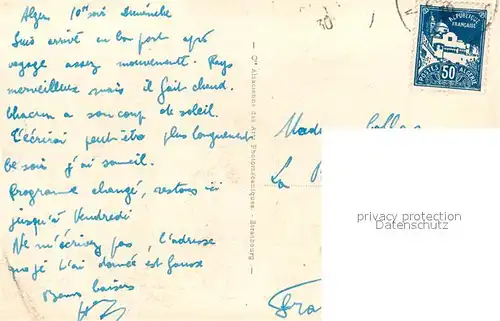 Alger 10h soir Dimanche
Suis arrivé en bon port après
voyage assez mouvementé. Pays
merveilleux mais il fait chaud.
chacun a son coup de soleil.
T'écrirai peut être plus longuement
Ce soir j'ai sommeil.
Programme changé, restons ici
jusqu'à Vendredi
Ne m'écrivez pas, l'adresse
que je t'ai donnée est fausse
Bons baisers
Cie Alsacienne des Arts Photomécaniques - Strasbourg
REPUBLIQUE
FRANÇAISE
POSTES
50
ALGERIE
Mad
La
Fra
privacy protection
Datenschutz